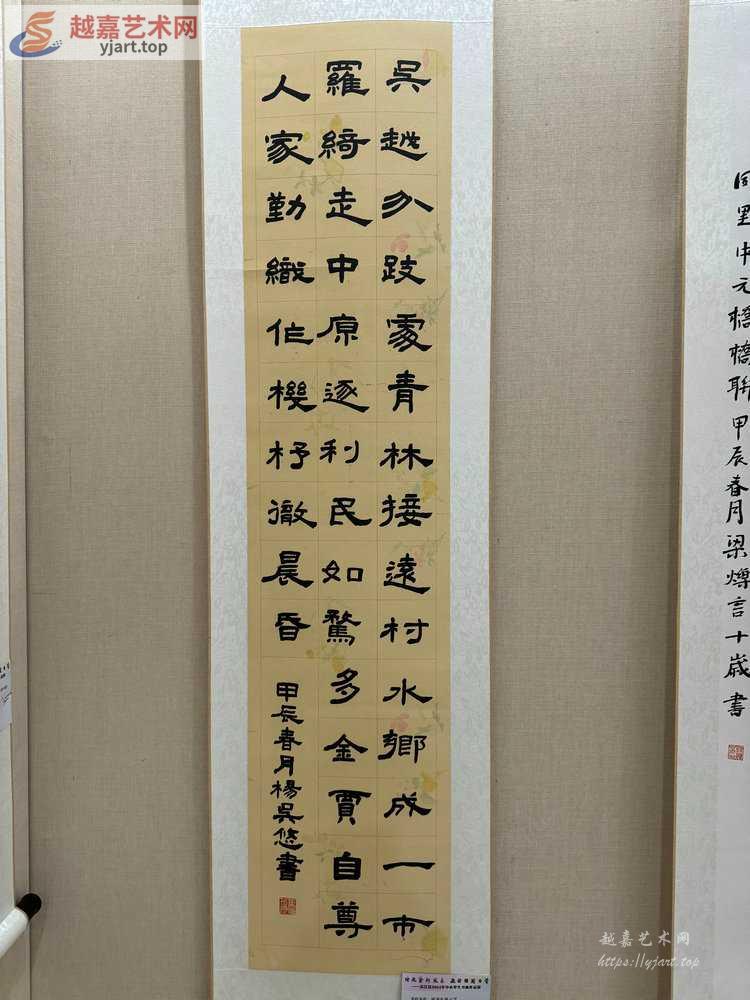 越嘉艺术网
yjart.top
吳越分跂處青林接遠村水鄉成一市
羅綺走中原逐利民如鶩多金賈自尊
人家勤織作機杼徹晨昏
甲辰春月楊吳悠書
同里中元橋橋聯甲辰春月梁燁言十歲書
越嘉艺术网
https://yjart.top